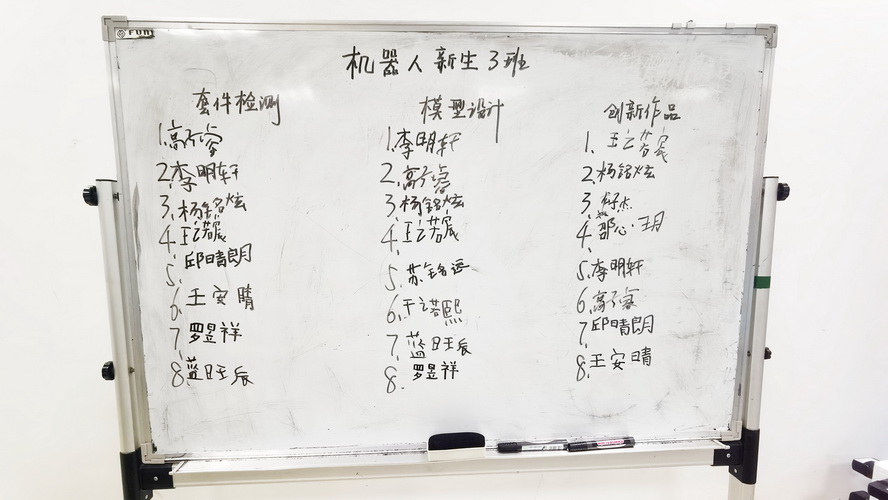 FUN
机器人新生3班
套件检测
1.高子睿
2.李明轩
3.杨铭炫
4.王云若宸
5.邱晴朗
6.王安晴
7.罗昱祥
8.蓝旺辰
模型设计
1.李明轩
2.高子睿
3.杨铭炫
4.王云若宸
5.苏铭远
6.于诺熙
7.蓝旺辰
8.罗昱祥
创新作品
1.
2.杨铭炫
3.
4.邵心玥
5.李明轩
6.高子睿
7.邱晴朗
8.王安晴